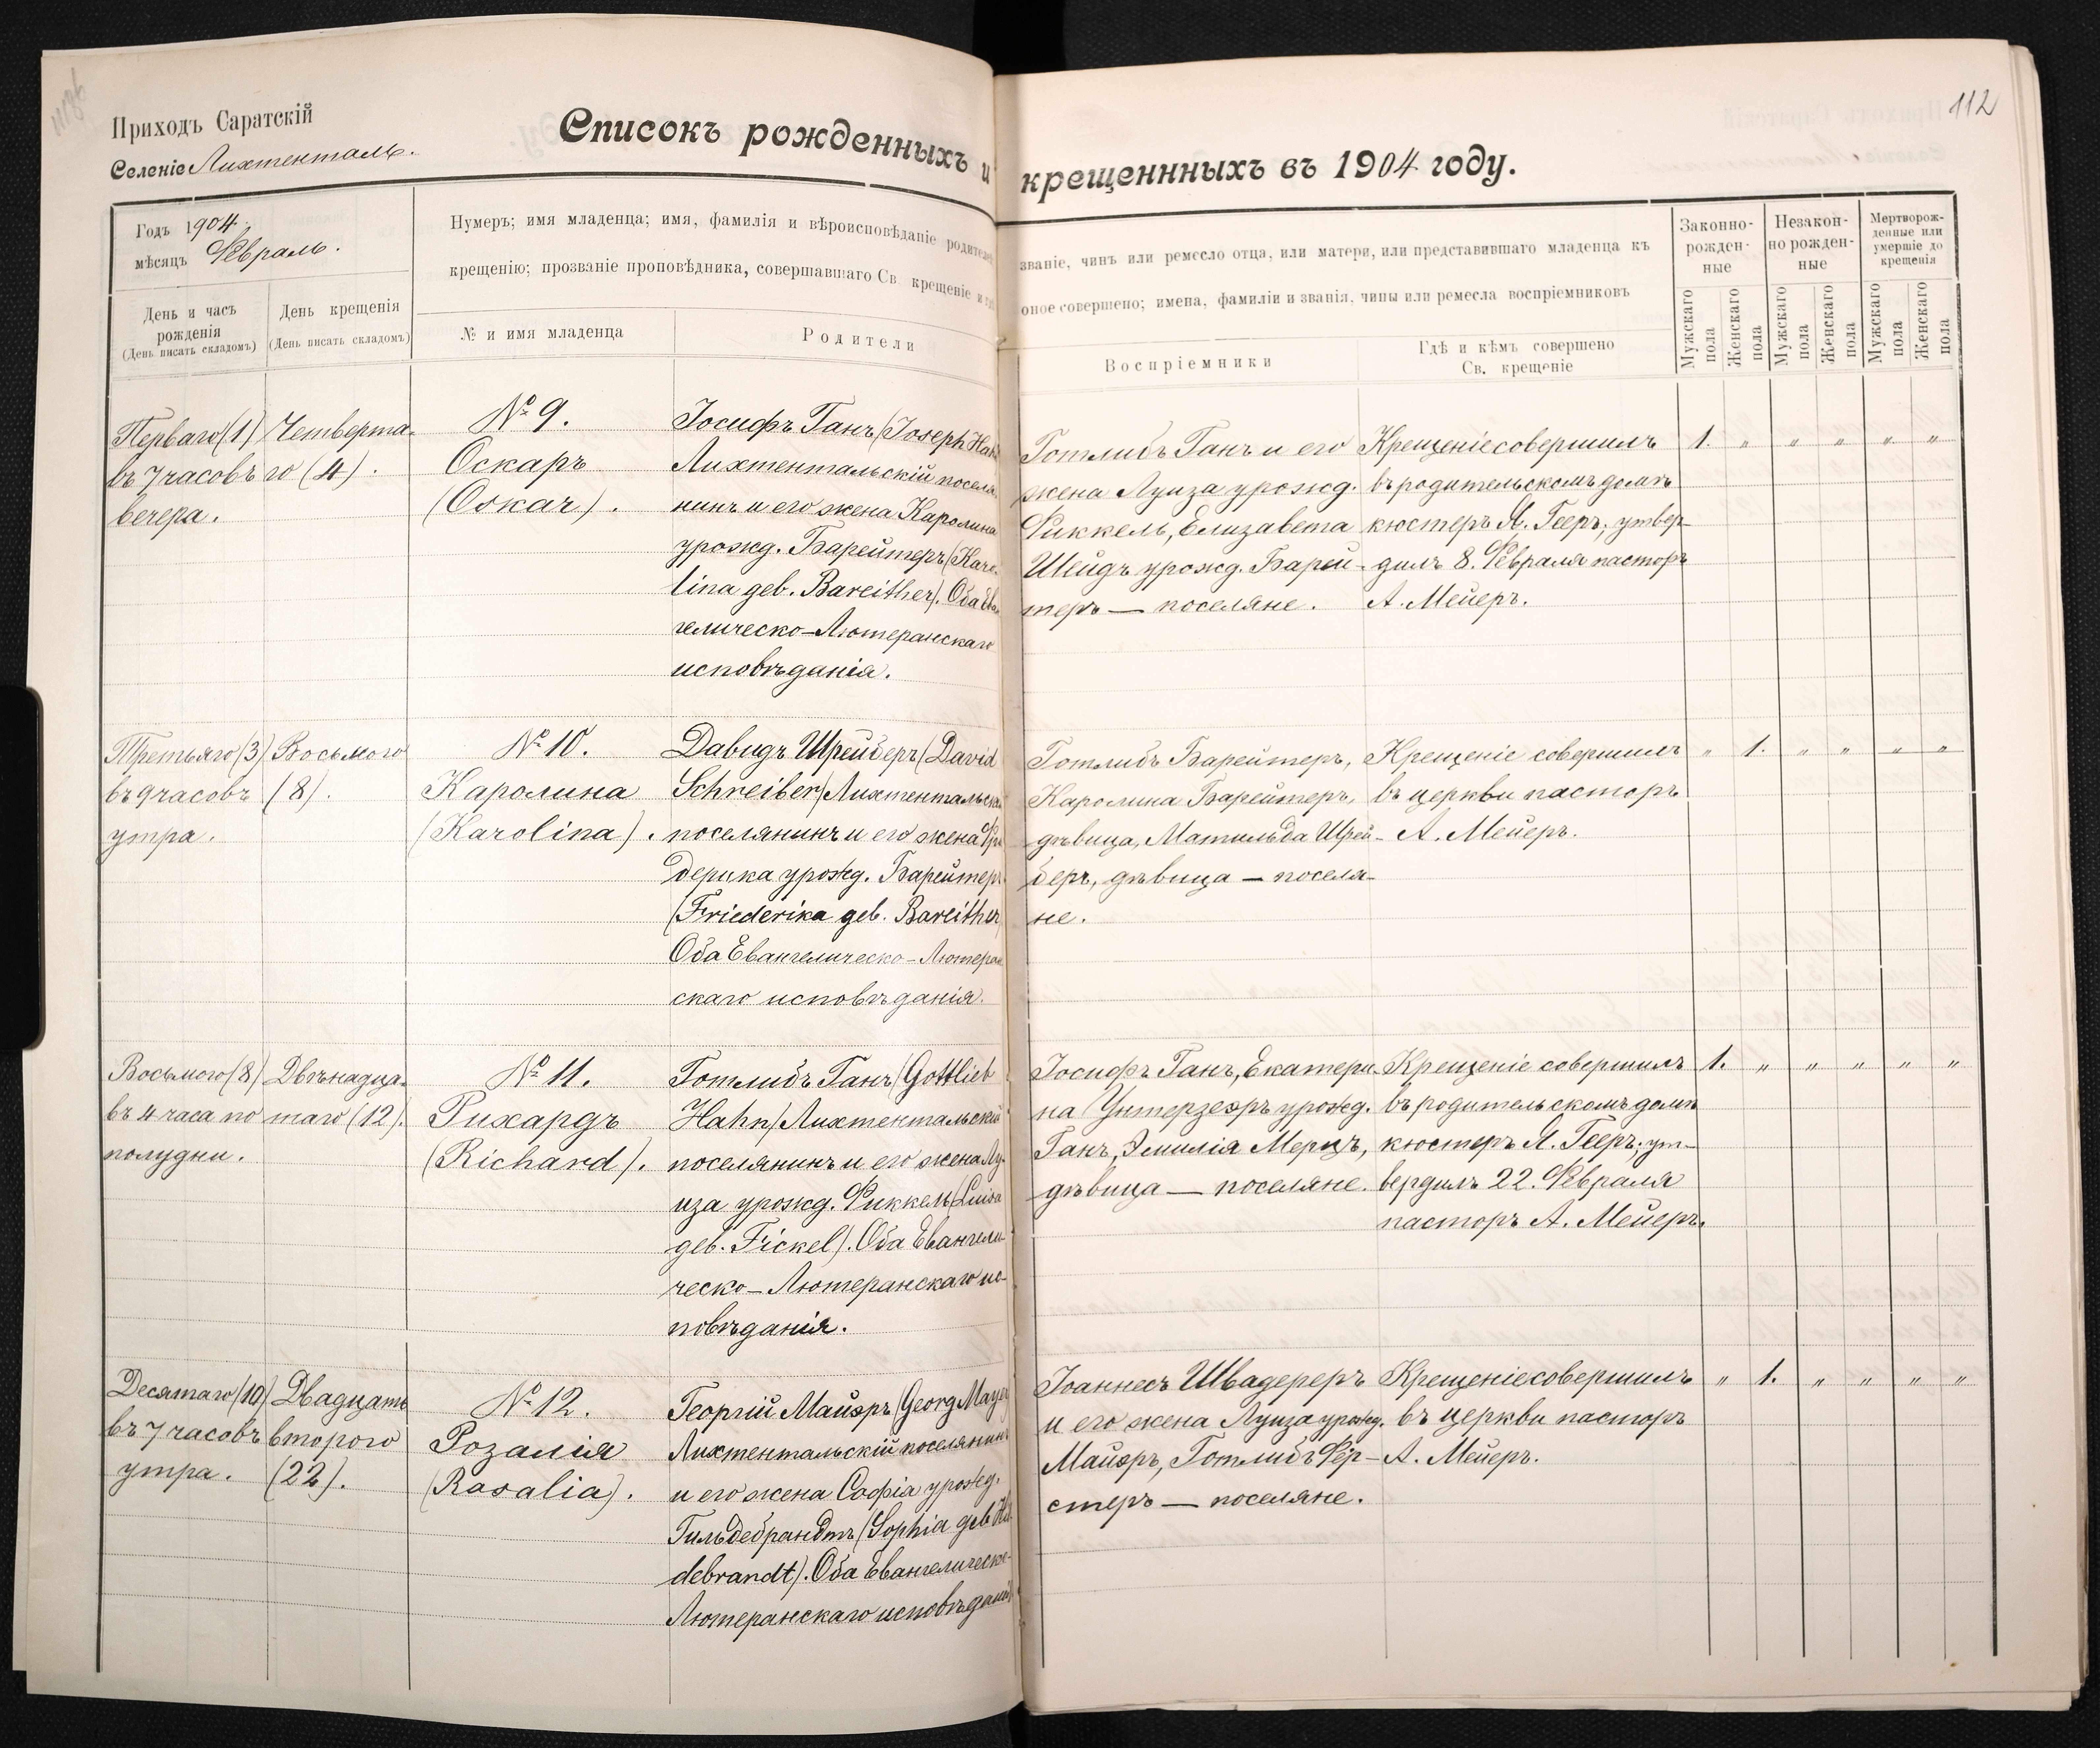 112
Приходъ Саратскій
Селеніе Лихтенталь.
Списокъ рожденныхъ и крещеннныхъ въ 1904 году.
Годъ 1904.
мѣсяцъ Февраль.
День и часъ
рожденія
(День писать складомъ)
День крещенія
(День писать складомъ)
Нумеръ; имя младенца; имя, фамилія и вѣроисповѣданіе
крещенію; прозваніе проповѣдника, совершавшаго Св крещеніе и
№ и имя младенца
Родители
званіе, чинъ или ремесло отца, или матери, или представившаго младенца къ
оное совершено; имена, фамиліи и званія, чины или ремесла воспріемниковъ
Воспріемники
Гдѣ и кѣмъ совершено
Св. крещеніе
Законно-
рожден-
ные
Незакон-
но рожден-
ные
Мертворож-
денные или
умершіе до
крещенія
Мужскаго
пола
Женскаго
пола
Мужскаго
пола
Женскаго
пола
Мужскаго
пола
Женскаго
пола
Перваго (1)
въ 7 часовъ
вечера.
Четверта-
го (4).
№ 9.
Оскаръ
(Oskar).
Іосифъ Ганъ (Joseph Hahn
Лихтентальскій поселя-
нинъ и его жена Каролина
урожд. Барейтеръ (Karo-
lina geb. Bareither). Оба Еван
гелическо-Лютеранскаго
исповѣданія.
Готлибъ Ганъ и его
жена Луиза урожд.
Фиккель, Елизавета
Шейдъ урожд. Барей-
теръ — поселяне.
Крещеніе совершилъ
въ родительскомъ домѣ
кюстеръ Я. Гееръ; утвер-
дилъ 8. Февраля пасторъ
А. Мейеръ.
1. " " " " "
Третьяго (3)
въ 9 часовъ
утра.
Восьмого
(8).
№ 10.
Каролина
(Karolina).
Давидъ Шрейберъ (David
Schreiber) Лихтентальскій
поселянинъ и его жена Фри
дерика урожд. Барейтеръ
(Friederika geb. Bareither)
Оба Евангелическо-Лютеран
скаго исповѣданія.
Готлибъ Барейтеръ,
Каролина Барейтеръ,
дѣвица, Матильда Шрей-
беръ, дѣвица — поселя-
не.
Крещеніе совершилъ
въ церкви пасторъ
А. Мейеръ.
" 1. " " " "
Восьмого (8)
въ 4 часа по
полудни.
Двѣнадца-
таго (12).
№ 11.
Рихардъ
(Richard).
Готлибъ Ганъ (Gottlieb
Hahn) Лихтентальскій
поселянинъ и его жена Лу-
иза урожд. Фиккель (Luisa
geb. Fickel). Оба Евангели-
ческо-Лютеранскаго ис-
повѣданія.
Іосифъ Ганъ, Екатери-
на Унтерзееръ урожд.
Ганъ, Эмилія Мерцъ,
дѣвица — поселяне.
Крещеніе совершилъ
въ родительскомъ домѣ
кюстеръ Я. Гееръ; ут-
вердилъ 22. Февраля
пасторъ А. Мейеръ.
1. " " " " "
Десятаго (10)
въ 7 часовъ
утра.
Двадцать
второго
(22).
№ 12.
Розалія
(Rosalia).
Георгій Майэръ (Georg Mayer
Лихтентальскій поселянинъ
и его жена Софія урожд.
Гильдебрандтъ (Sophia geb Hil
debrandt). Оба Евангелическо-
Лютеранскаго исповѣданія
Іоаннесъ Швадереръ
и его жена Луиза урожд.
Майэръ, Готлибъ Фёр-
стеръ — поселяне.
Крещеніе совершилъ
въ церкви пасторъ
А. Мейеръ.
" 1. " " " "